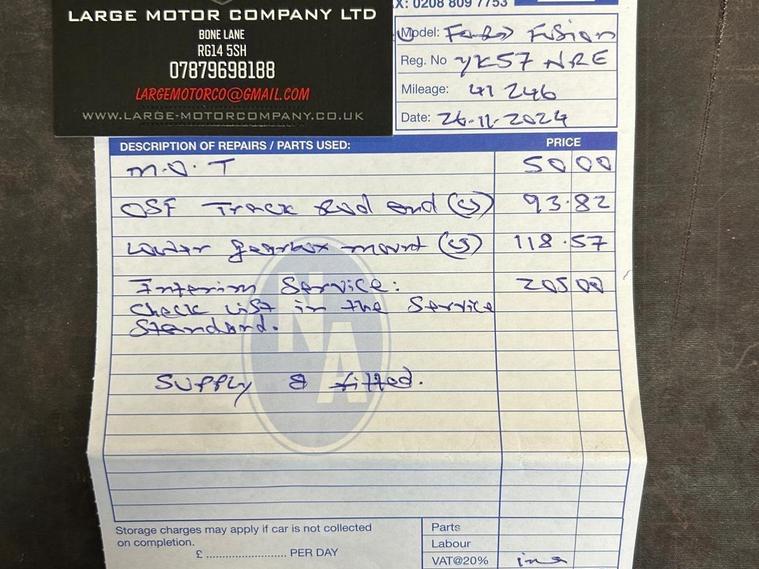 LARGE MOTOR COMPANY LTD
BONE LANE
RG14 5SH
07879698188
LARGEMOTORCO@GMAIL.COM
WWW.LARGE-MOTORCOMPANY.CO.UK
X: 0208 809 7753
Model: Ford Fusion
Reg. No YK57 NRE
Mileage: 41 246
Date: 26-11-2024
DESCRIPTION OF REPAIRS / PARTS USED: PRICE
M.O.T 50 00
OSF Track Rod end (cs) 93.82
Lower gearbox mount (cs) 118.57
Interim Service: 205 00
Check List in the Service
Standard.
NA
Supply & fitted.
Storage charges may apply if car is not collected
on completion.
£ .......................... PER DAY
Parts
Labour
VAT@20% inc